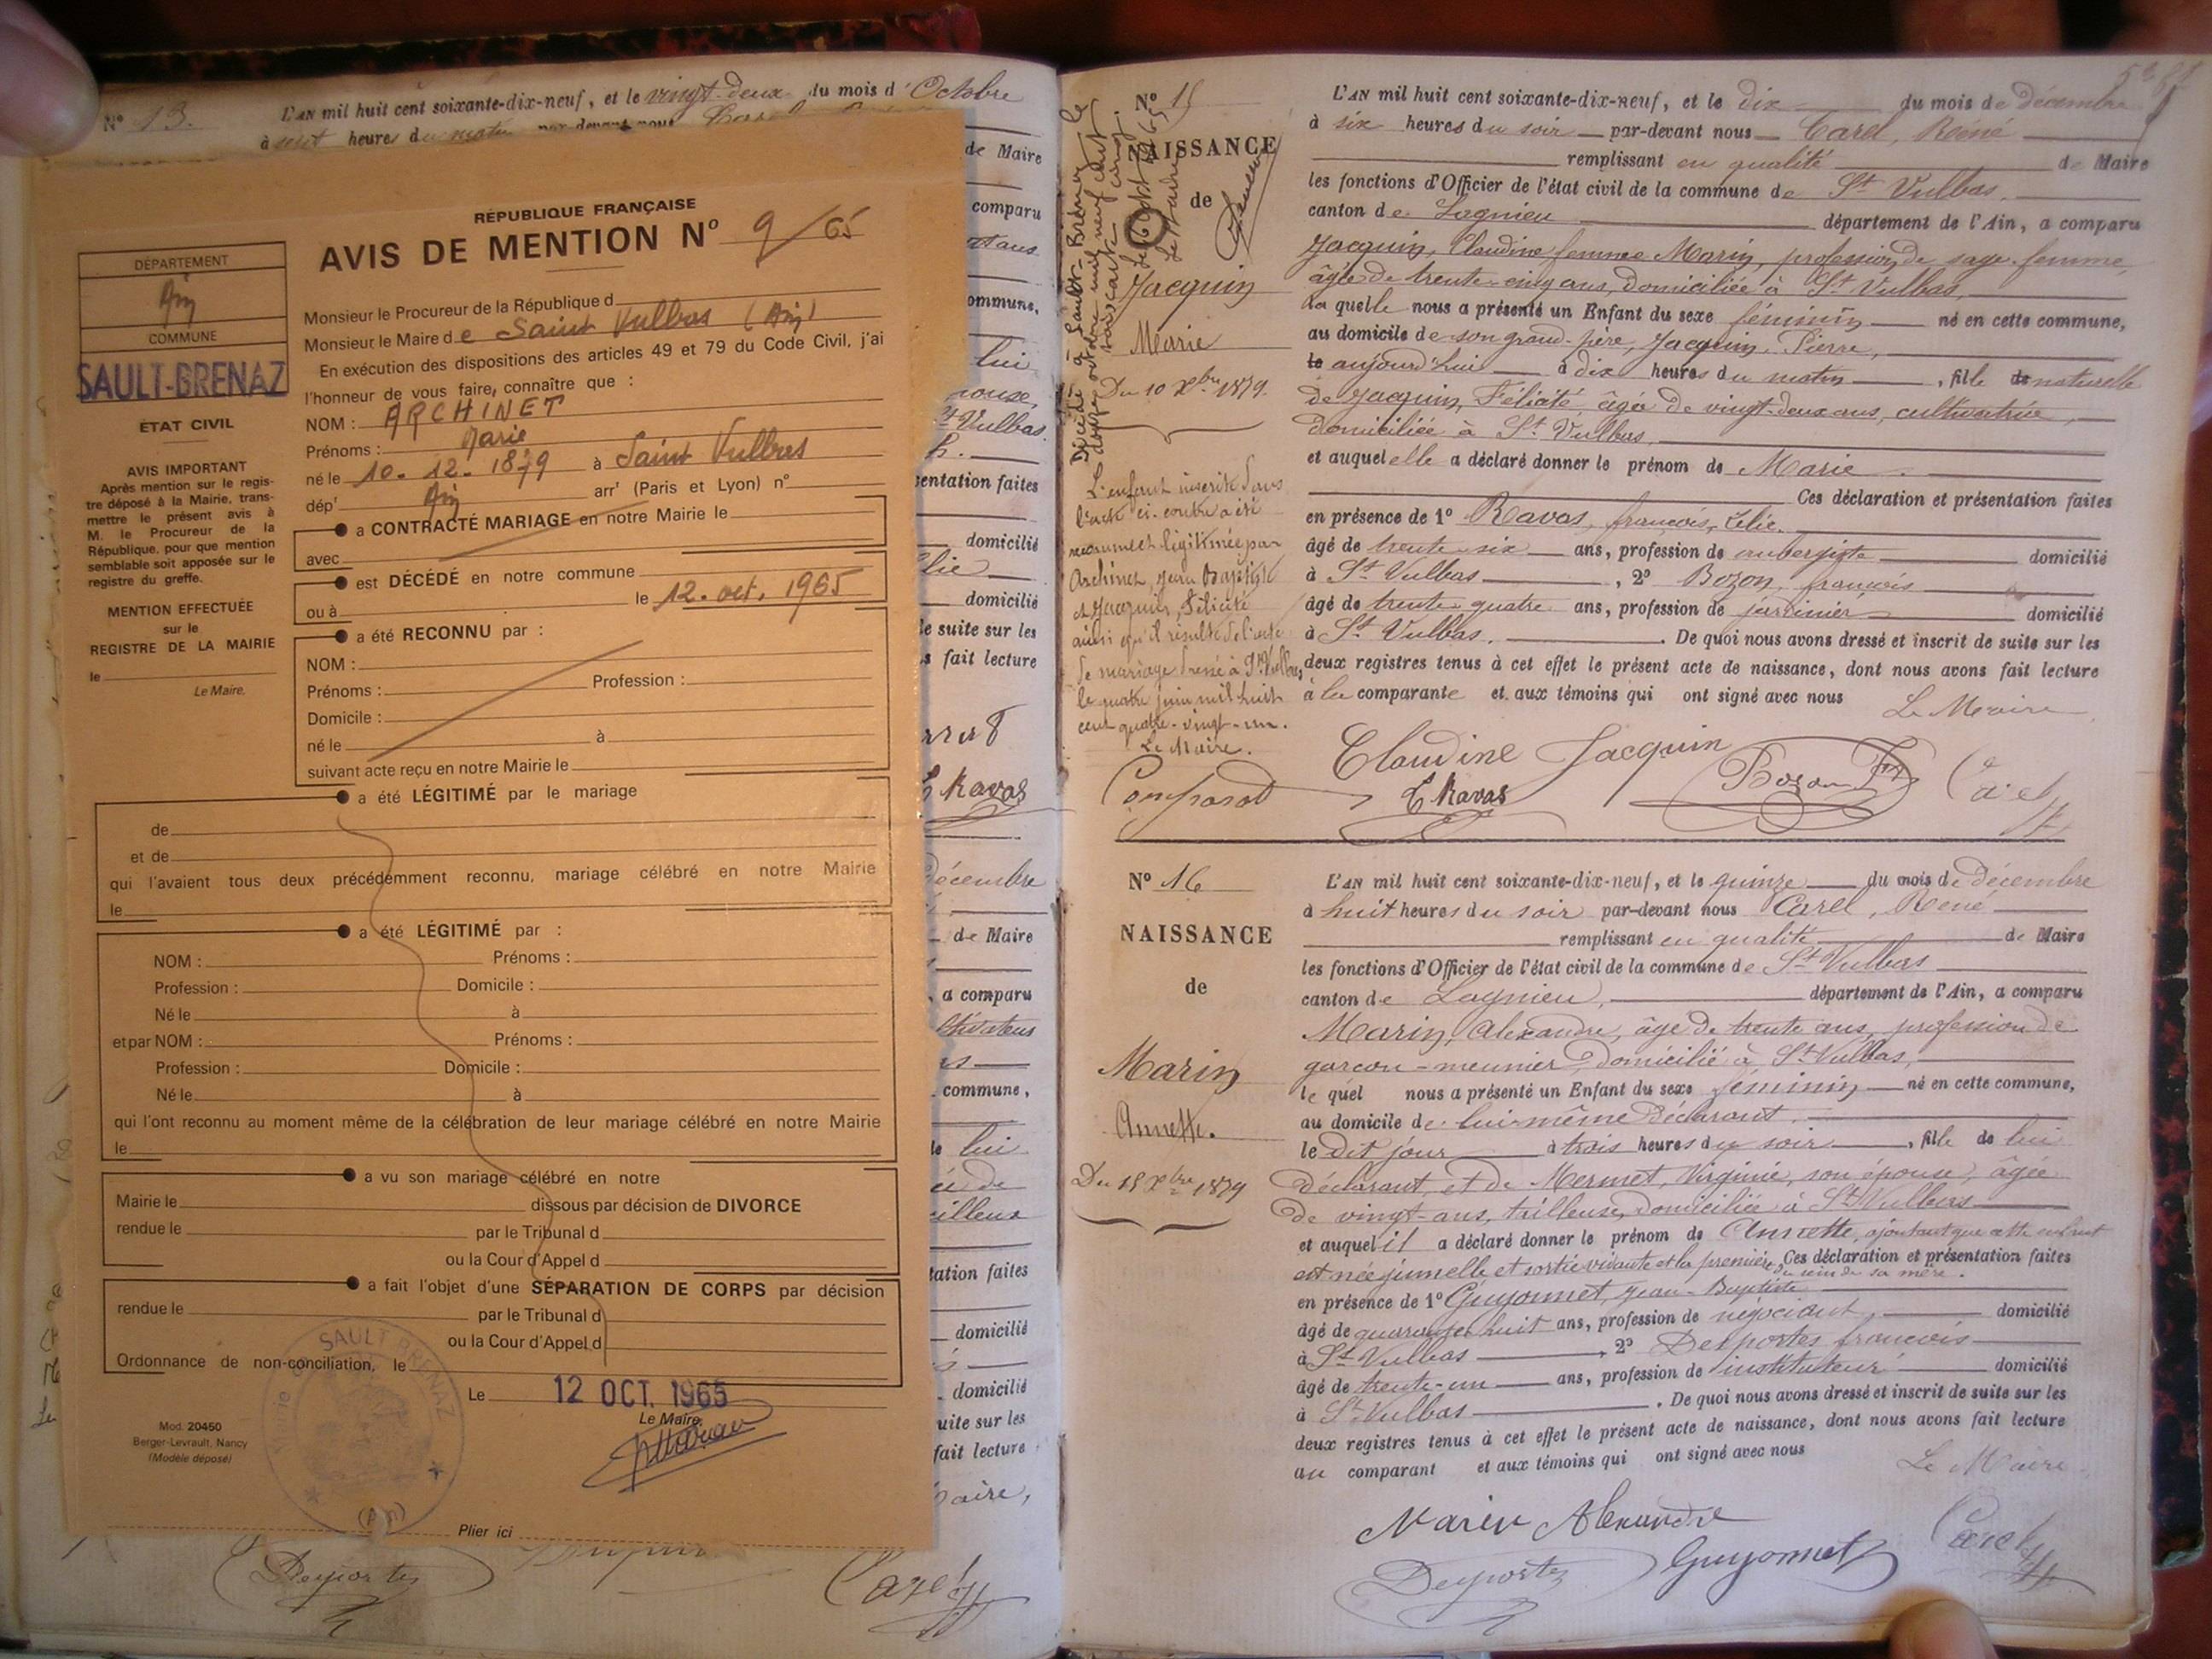 Nº 13.
L'AN mil huit cent soixante-dix-neuf, et le vingt-deux du mois d'Octobre
heures du matin
RÉPUBLIQUE FRANÇAISE
AVIS DE MENTION Nº 9/65
DÉPARTEMENT
Ain
COMMUNE
SAULT-BRENAZ
ÉTAT CIVIL
AVIS IMPORTANT
Après mention sur le regis-
tre déposé à la Mairie, trans-
mettre le présent avis à
M. le Procureur de la
République, pour que mention
semblable soit apposée sur le
registre du greffe.
MENTION EFFECTUÉE
sur le
REGISTRE DE LA MAIRIE
le
Le Maire,
Monsieur le Procureur de la République d
Monsieur le Maire de Saint Vulbas (Ain)
En exécution des dispositions des articles 49 et 79 du Code Civil, j'ai
l'honneur de vous faire connaître que :
NOM : ARCHINET
Prénoms : Marie
né le 10. 12. 1879 à Saint Vulbas
dépt Ain arrt (Paris et Lyon) nº
a CONTRACTÉ MARIAGE en notre Mairie le
avec
est DÉCÉDÉ en notre commune
ou à le 12. oct. 1965
a été RECONNU par :
NOM :
Prénoms : Profession :
Domicile :
né le à
suivant acte reçu en notre Mairie le
a été LÉGITIMÉ par le mariage
de
et de
qui l'avaient tous deux précédemment reconnu, mariage célébré en notre Mairie
le
a été LÉGITIMÉ par :
NOM : Prénoms :
Profession : Domicile :
Né le à
et par NOM : Prénoms :
Profession : Domicile :
Né le à
qui l'ont reconnu au moment même de la célébration de leur mariage célébré en notre Mairie
le
a vu son mariage célébré en notre
Mairie le dissous par décision de DIVORCE
rendue le par le Tribunal d
ou la Cour d'Appel d
a fait l'objet d'une SÉPARATION DE CORPS par décision
rendue le par le Tribunal d
ou la Cour d'Appel d
Ordonnance de non-conciliation, le
SAULT BRENAZ
(Ain)
Le 12 OCT. 1965
Le Maire,
Mod. 20450
Berger-Levrault, Nancy
(Modèle déposé)
Plier ici
Desportes
Carel
de Maire
comparu
ommune,
lui
Vulbas
sentation faites
domicilié
domicilié
de suite sur les
s fait lecture
Ravas
Décembre
de Maire
, a comparu
commune,
de lui
tation faites
domicilié
domicilié
uite sur les
fait lecture
Nº 15
NAISSANCE
de
Jacquin
Marie
Du 10 Xbre 1879.
Décédée à Sault-Brénaz le
douze octobre mil neuf cent
soixante cinq.
Le Maire
L'enfant inscrit dans
l'acte ci-contre a été
reconnu et légitimée par
Archinet, Jean Baptiste
et Jacquin, Félicité
ainsi qu'il résulte de l'acte
de mariage dressé à St Vulbas
le quatre juin mil huit
cent quatre-vingt-un.
Le Maire.
Comparat
L'AN mil huit cent soixante-dix-neuf, et le dix du mois de Décembre
à six heures du soir par-devant nous Carel, Réné
remplissant en qualité de Maire
les fonctions d'Officier de l'état civil de la commune de St Vulbas,
canton de Lagnieu département de l'Ain, a comparu
Jacquin, Claudine femme Marin, profession de sage-femme,
âgée de trente-cinq ans, domiciliée à St Vulbas,
La quelle nous a présenté un Enfant du sexe féminin né en cette commune,
au domicile de son grand-père, Jacquin, Pierre,
le aujourd'hui à dix heures du matin, fille de naturelle
de Jacquin, Félicité, âgée de vingt-deux ans, cultivatrice,
domiciliée à St Vulbas,
et auquel elle a déclaré donner le prénom de Marie.
Ces déclaration et présentation faites
en présence de 1º Ravas, françois, Élie,
âgé de trente-six ans, profession de aubergiste domicilié
à St Vulbas, 2º Bozon, françois
âgé de trente-quatre ans, profession de jardinier domicilié
à St Vulbas. De quoi nous avons dressé et inscrit de suite sur les
deux registres tenus à cet effet le présent acte de naissance, dont nous avons fait lecture
à la comparante et aux témoins qui ont signé avec nous
Le Maire
Claudine Jacquin
E. Ravas
Bozon Fs
Carel
Nº 16
NAISSANCE
de
Marin
Annette.
Du 15 Xbre 1879
L'AN mil huit cent soixante-dix-neuf, et le quinze du mois de Décembre
à huit heures du soir par-devant nous Carel, René
remplissant en qualité de Maire
les fonctions d'Officier de l'état civil de la commune de St Vulbas
canton de Lagnieu, département de l'Ain, a comparu
Marin, Alexandre, âgé de trente ans, profession de
garçon-meunier, domicilié à St Vulbas,
le quel nous a présenté un Enfant du sexe féminin né en cette commune,
au domicile de lui-même Déclarant.
le dit jour à trois heures du soir, fille de lui
déclarant, et de Mermet, Virginie, son épouse, âgée
de vingt-ans, tailleuse, domiciliée à St Vulbas
et auquel il a déclaré donner le prénom de Annette, ajoutant que cette enfant
est née jumelle et sortie vivante et la première du sein de sa mère. Ces déclaration et présentation faites
en présence de 1º Guyonnet, Jean-Baptiste
âgé de quarante huit ans, profession de négociant, domicilié
à St Vulbas, 2º Desportes françois
âgé de trente-un ans, profession de instituteur domicilié
à St Vulbas. De quoi nous avons dressé et inscrit de suite sur les
deux registres tenus à cet effet le présent acte de naissance, dont nous avons fait lecture
au comparant et aux témoins qui ont signé avec nous
Le Maire
Marin Alexandre
Desportes
Guyonnet
Carel